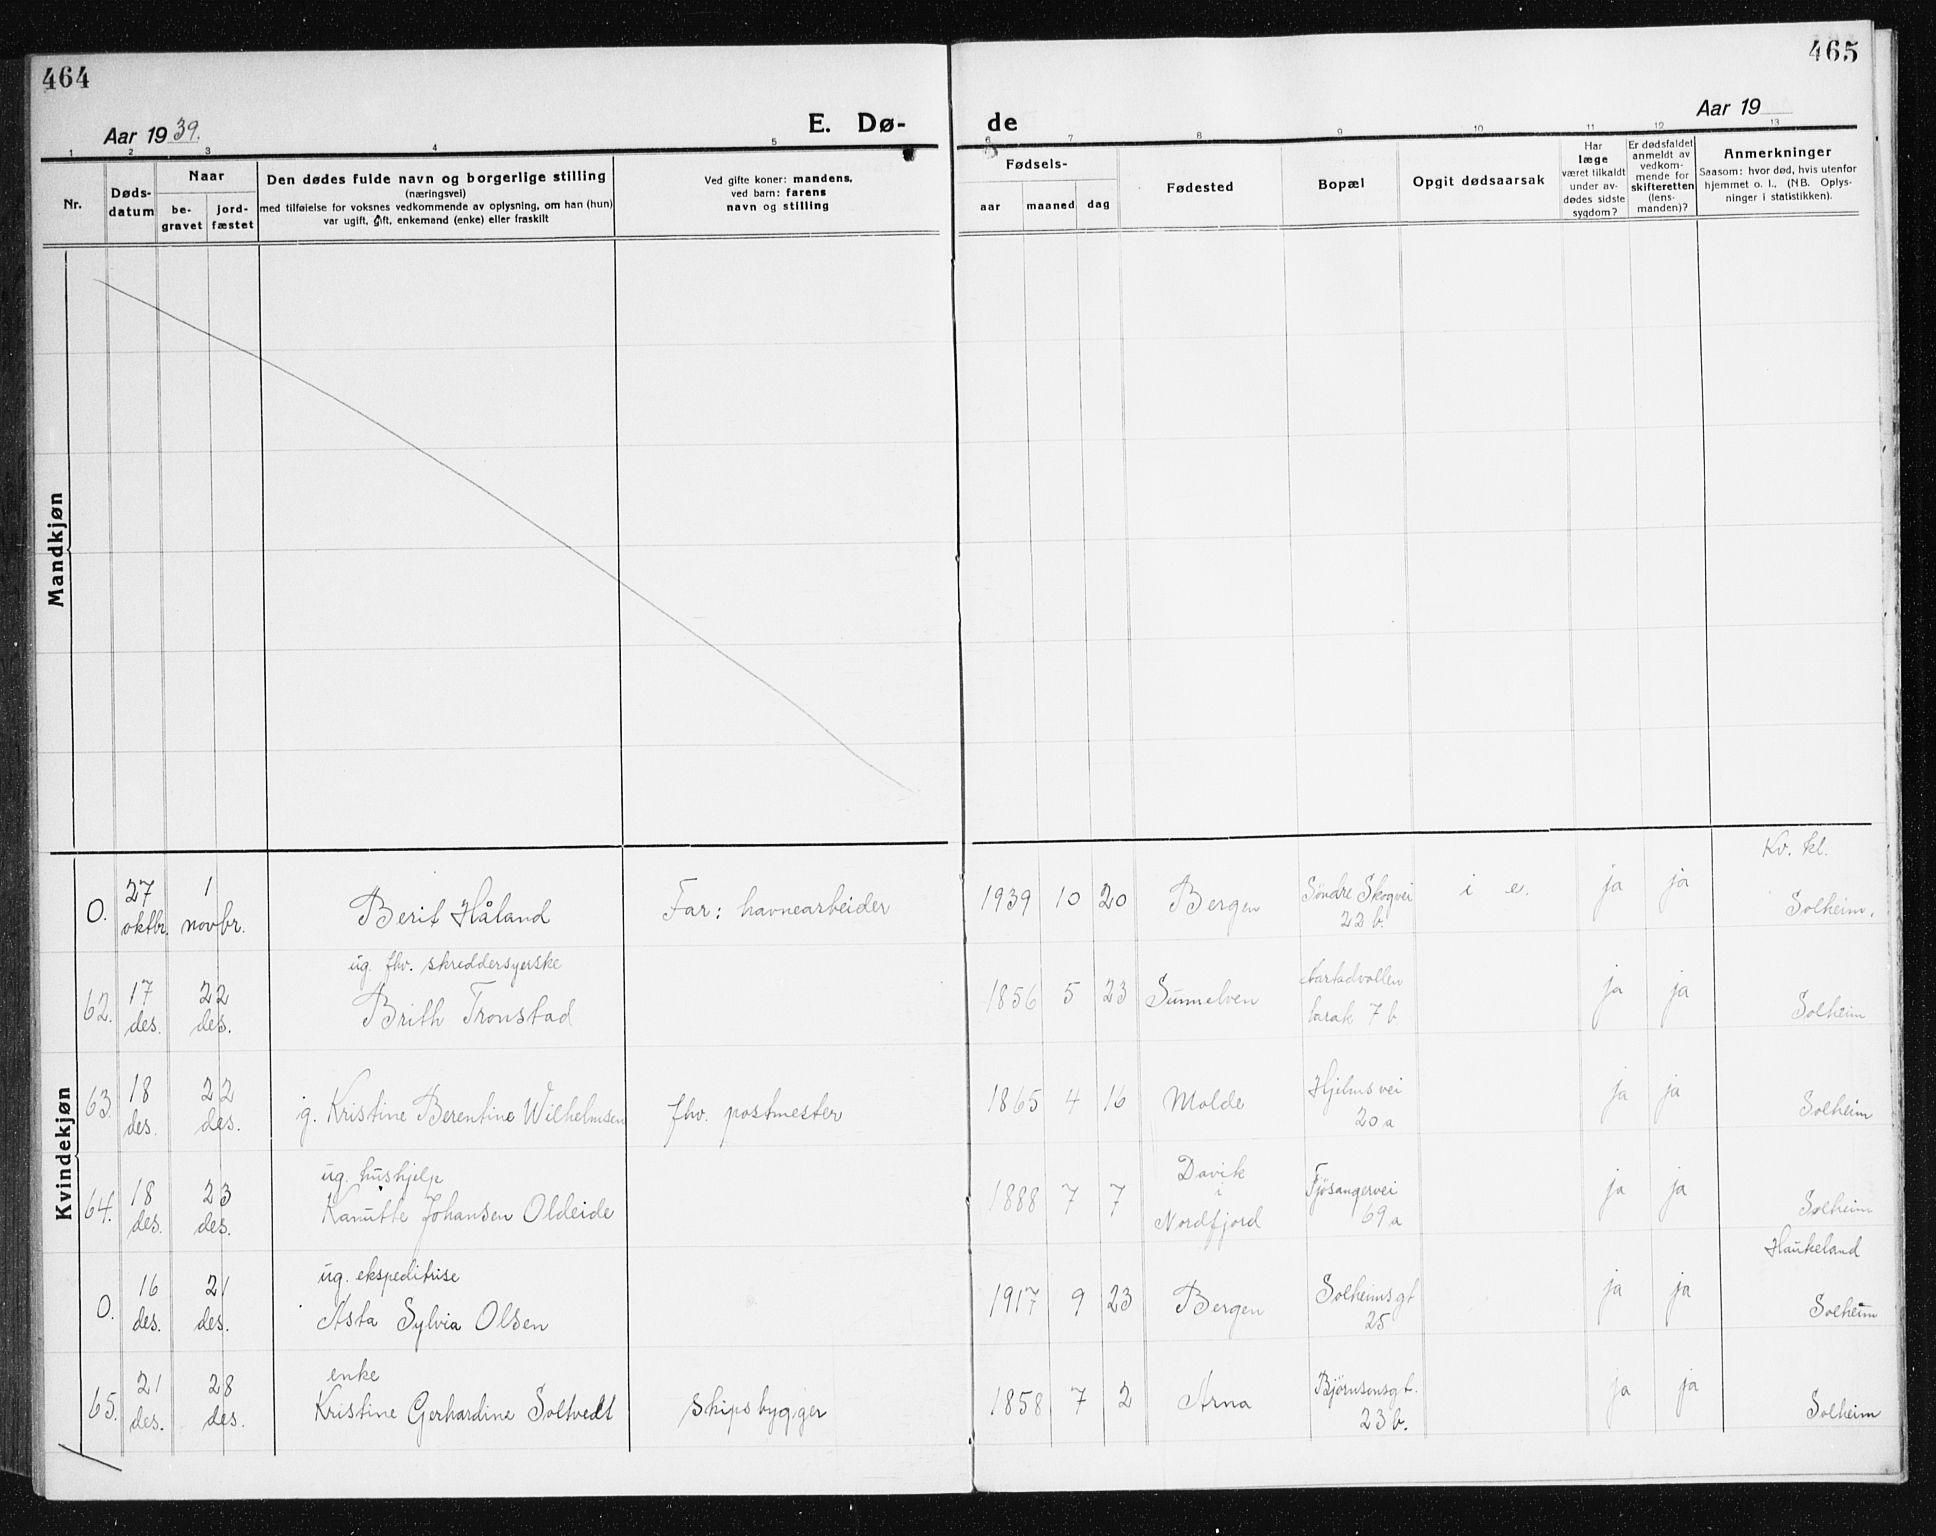 464
465
Aar 1939.
E. Dø-
de
Aar 19
1 2 3 4 5
6 7 8 9 10 11 12 13
Nr.
Døds-
datum
Naar
be-
gravet
jord-
fæstet
Den dødes fulde navn og borgerlige stilling
(næringsvei)
med tilføielse for voksnes vedkommende av oplysning, om han (hun)
var ugift, gift, enkemand (enke) eller fraskilt
Ved gifte koner: mandens,
ved barn: farens
navn og stilling
Fødsels-
aar
maaned
dag
Fødested
Bopæl
Opgit dødsaarsak
Har
læge
været tilkaldt
under av-
dødes sidste
sygdom?
Er dødsfaldet
anmeldt av
vedkom-
mende for
skifteretten
(lens-
manden)?
Anmerkninger
Saasom: hvor død, hvis utenfor
hjemmet o. l., (NB. Oplys-
ninger i statistikken).
Mandkjøn
Kvindekjøn
Kv. kl.
0. 27 oktbr. 1 novbr. Berit Håland Far: havnearbeider 1939 10 20 Bergen Söndre Skogvei 22 b. i e. ja ja Solheim.
ug. fhv. skreddersyerske
62. 17 des. 22 des. Brith Tronstad 1856 5 23 Sunnelven barak 7 b ja ja Solheim
63. 18 des. 22 des. g. Kristine Berentine Wilhelmsen fhv. postmester 1865 4 16 Molde Hjelmsvei 20 a ja ja Solheim
ug. hushjelp
64. 18 des. 23 des. Kanutte Johansen Oldeide 1888 7 7 Davik i Nordfjord Fjösangervei 69 a ja ja Solheim
Haukeland
ug. ekspeditrise
0. 16 des. 21 des. Asta Sylvia Olsen 1917 9 23 Bergen Solheimsgt 25 ja ja Solheim
enke
65. 21 des. 28 des. Kristine Gerhardine Soltvedt Skipsbygger 1858 7 2 Arna Bjørnsonsgt. 23 b. ja ja Solheim